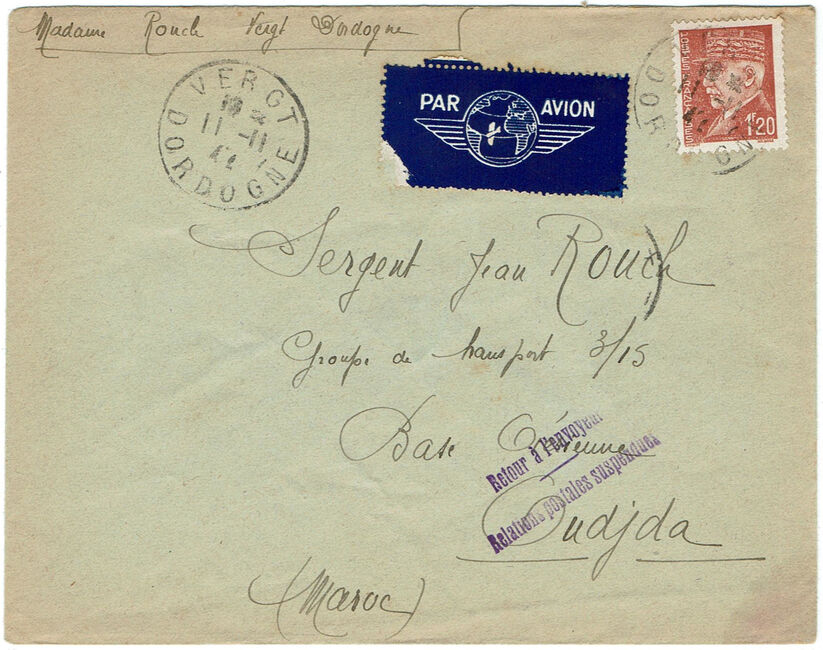 Madame Rouch Vergt Dordogne
VERGT
11-11
DORDOGNE
PAR AVION
1F20
DOR
Sergent Jean Rouch
Groupe de transport 3/15
Base Aérienne
Retour à l'envoyeur
Relations postales suspendues
Oudjda
(Maroc)